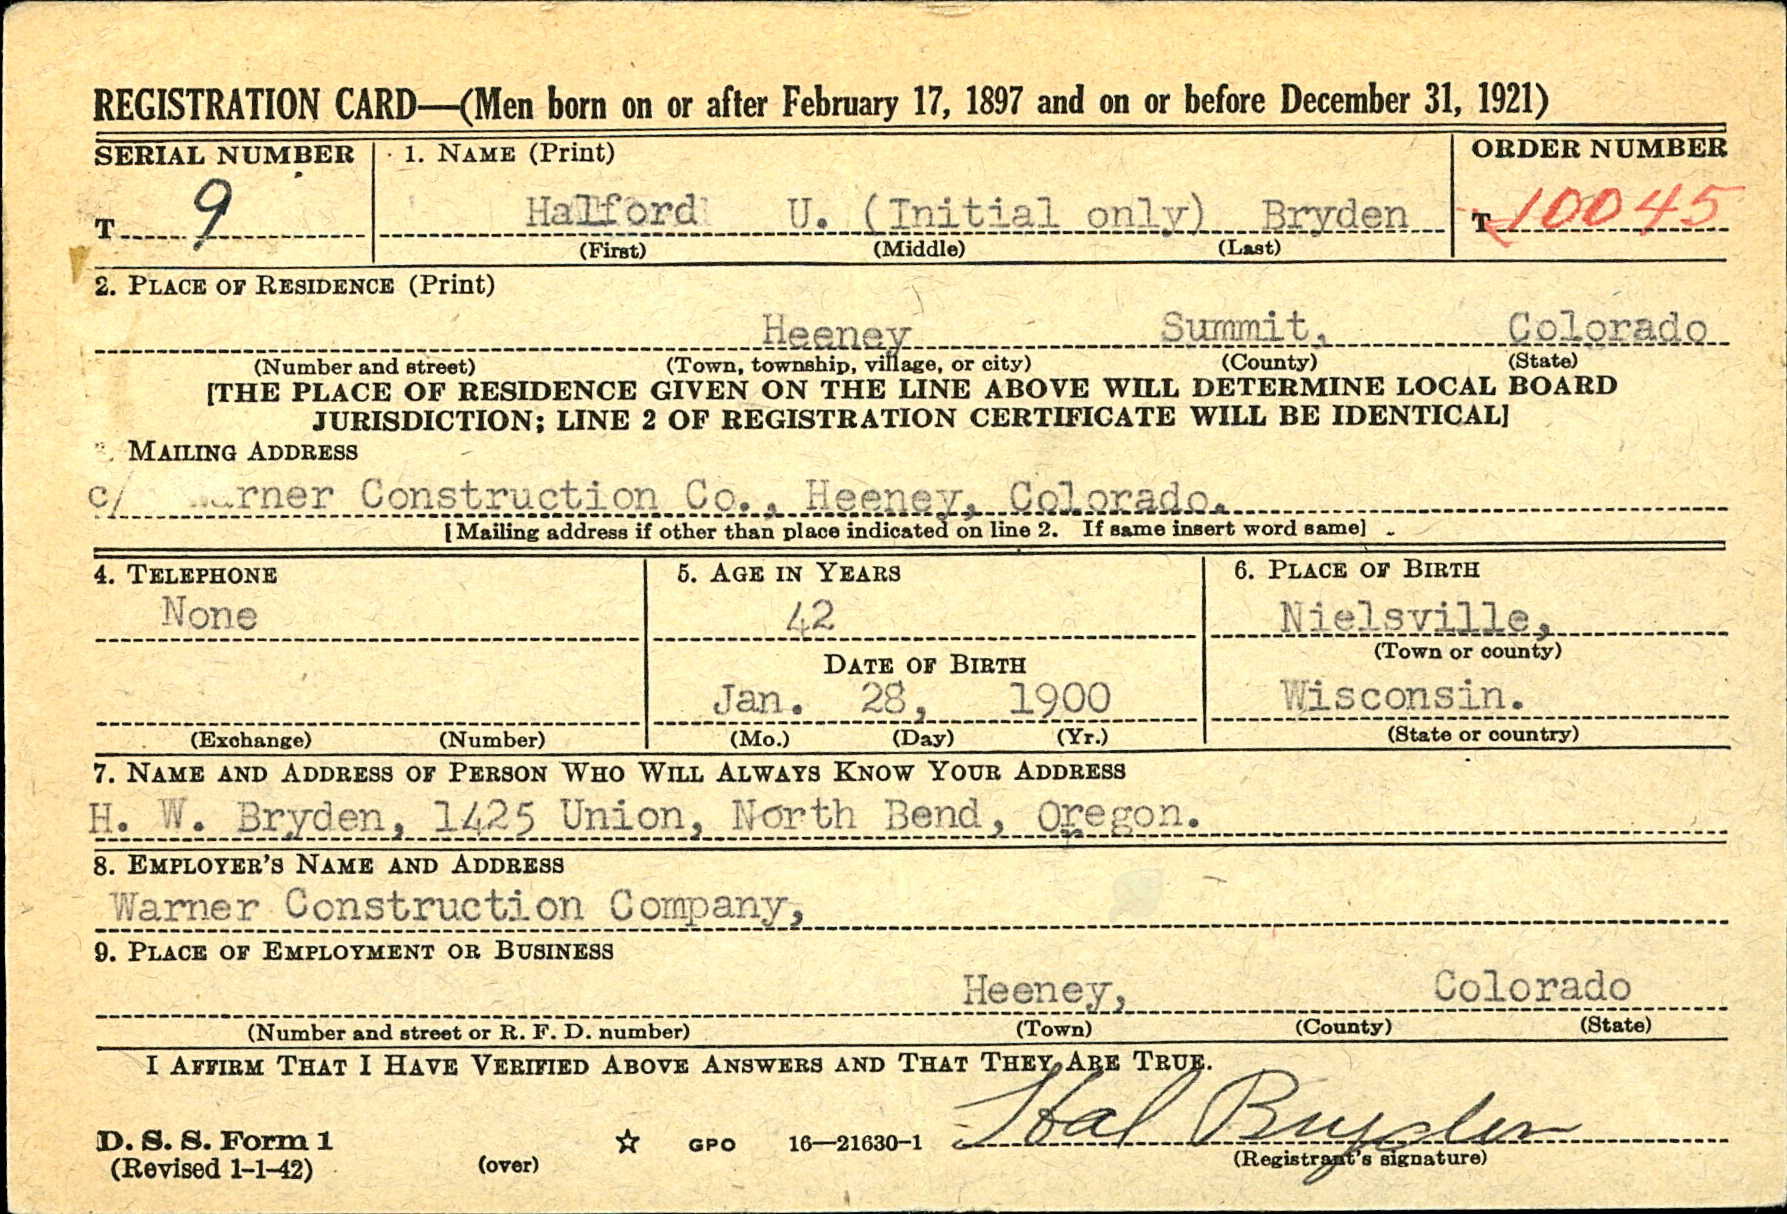 REGISTRATION CARD—(Men born on or after February 17, 1897 and on or before December 31, 1921)
SERIAL NUMBER 1. NAME (Print) ORDER NUMBER
T 9 Halford U. (Initial only) Bryden T 10045
(First) (Middle) (Last)
2. PLACE OF RESIDENCE (Print)
Heeney Summit, Colorado
(Number and street) (Town, township, village, or city) (County) (State)
[THE PLACE OF RESIDENCE GIVEN ON THE LINE ABOVE WILL DETERMINE LOCAL BOARD
JURISDICTION; LINE 2 OF REGISTRATION CERTIFICATE WILL BE IDENTICAL]
MAILING ADDRESS
c/ Warner Construction Co., Heeney, Colorado.
[Mailing address if other than place indicated on line 2. If same insert word same]
4. TELEPHONE 5. AGE IN YEARS 6. PLACE OF BIRTH
None 42 Nielsville,
(Town or county)
DATE OF BIRTH
Jan. 28, 1900 Wisconsin.
(Exchange) (Number) (Mo.) (Day) (Yr.) (State or country)
7. NAME AND ADDRESS OF PERSON WHO WILL ALWAYS KNOW YOUR ADDRESS
H. W. Bryden, 1425 Union, North Bend, Oregon.
8. EMPLOYER'S NAME AND ADDRESS
Warner Construction Company,
9. PLACE OF EMPLOYMENT OR BUSINESS
Heeney, Colorado
(Number and street or R. F. D. number) (Town) (County) (State)
I AFFIRM THAT I HAVE VERIFIED ABOVE ANSWERS AND THAT THEY ARE TRUE.
Hal Bryden
D. S. S. Form 1 GPO 16—21630-1
(Revised 1-1-42) (over) (Registrant's signature)